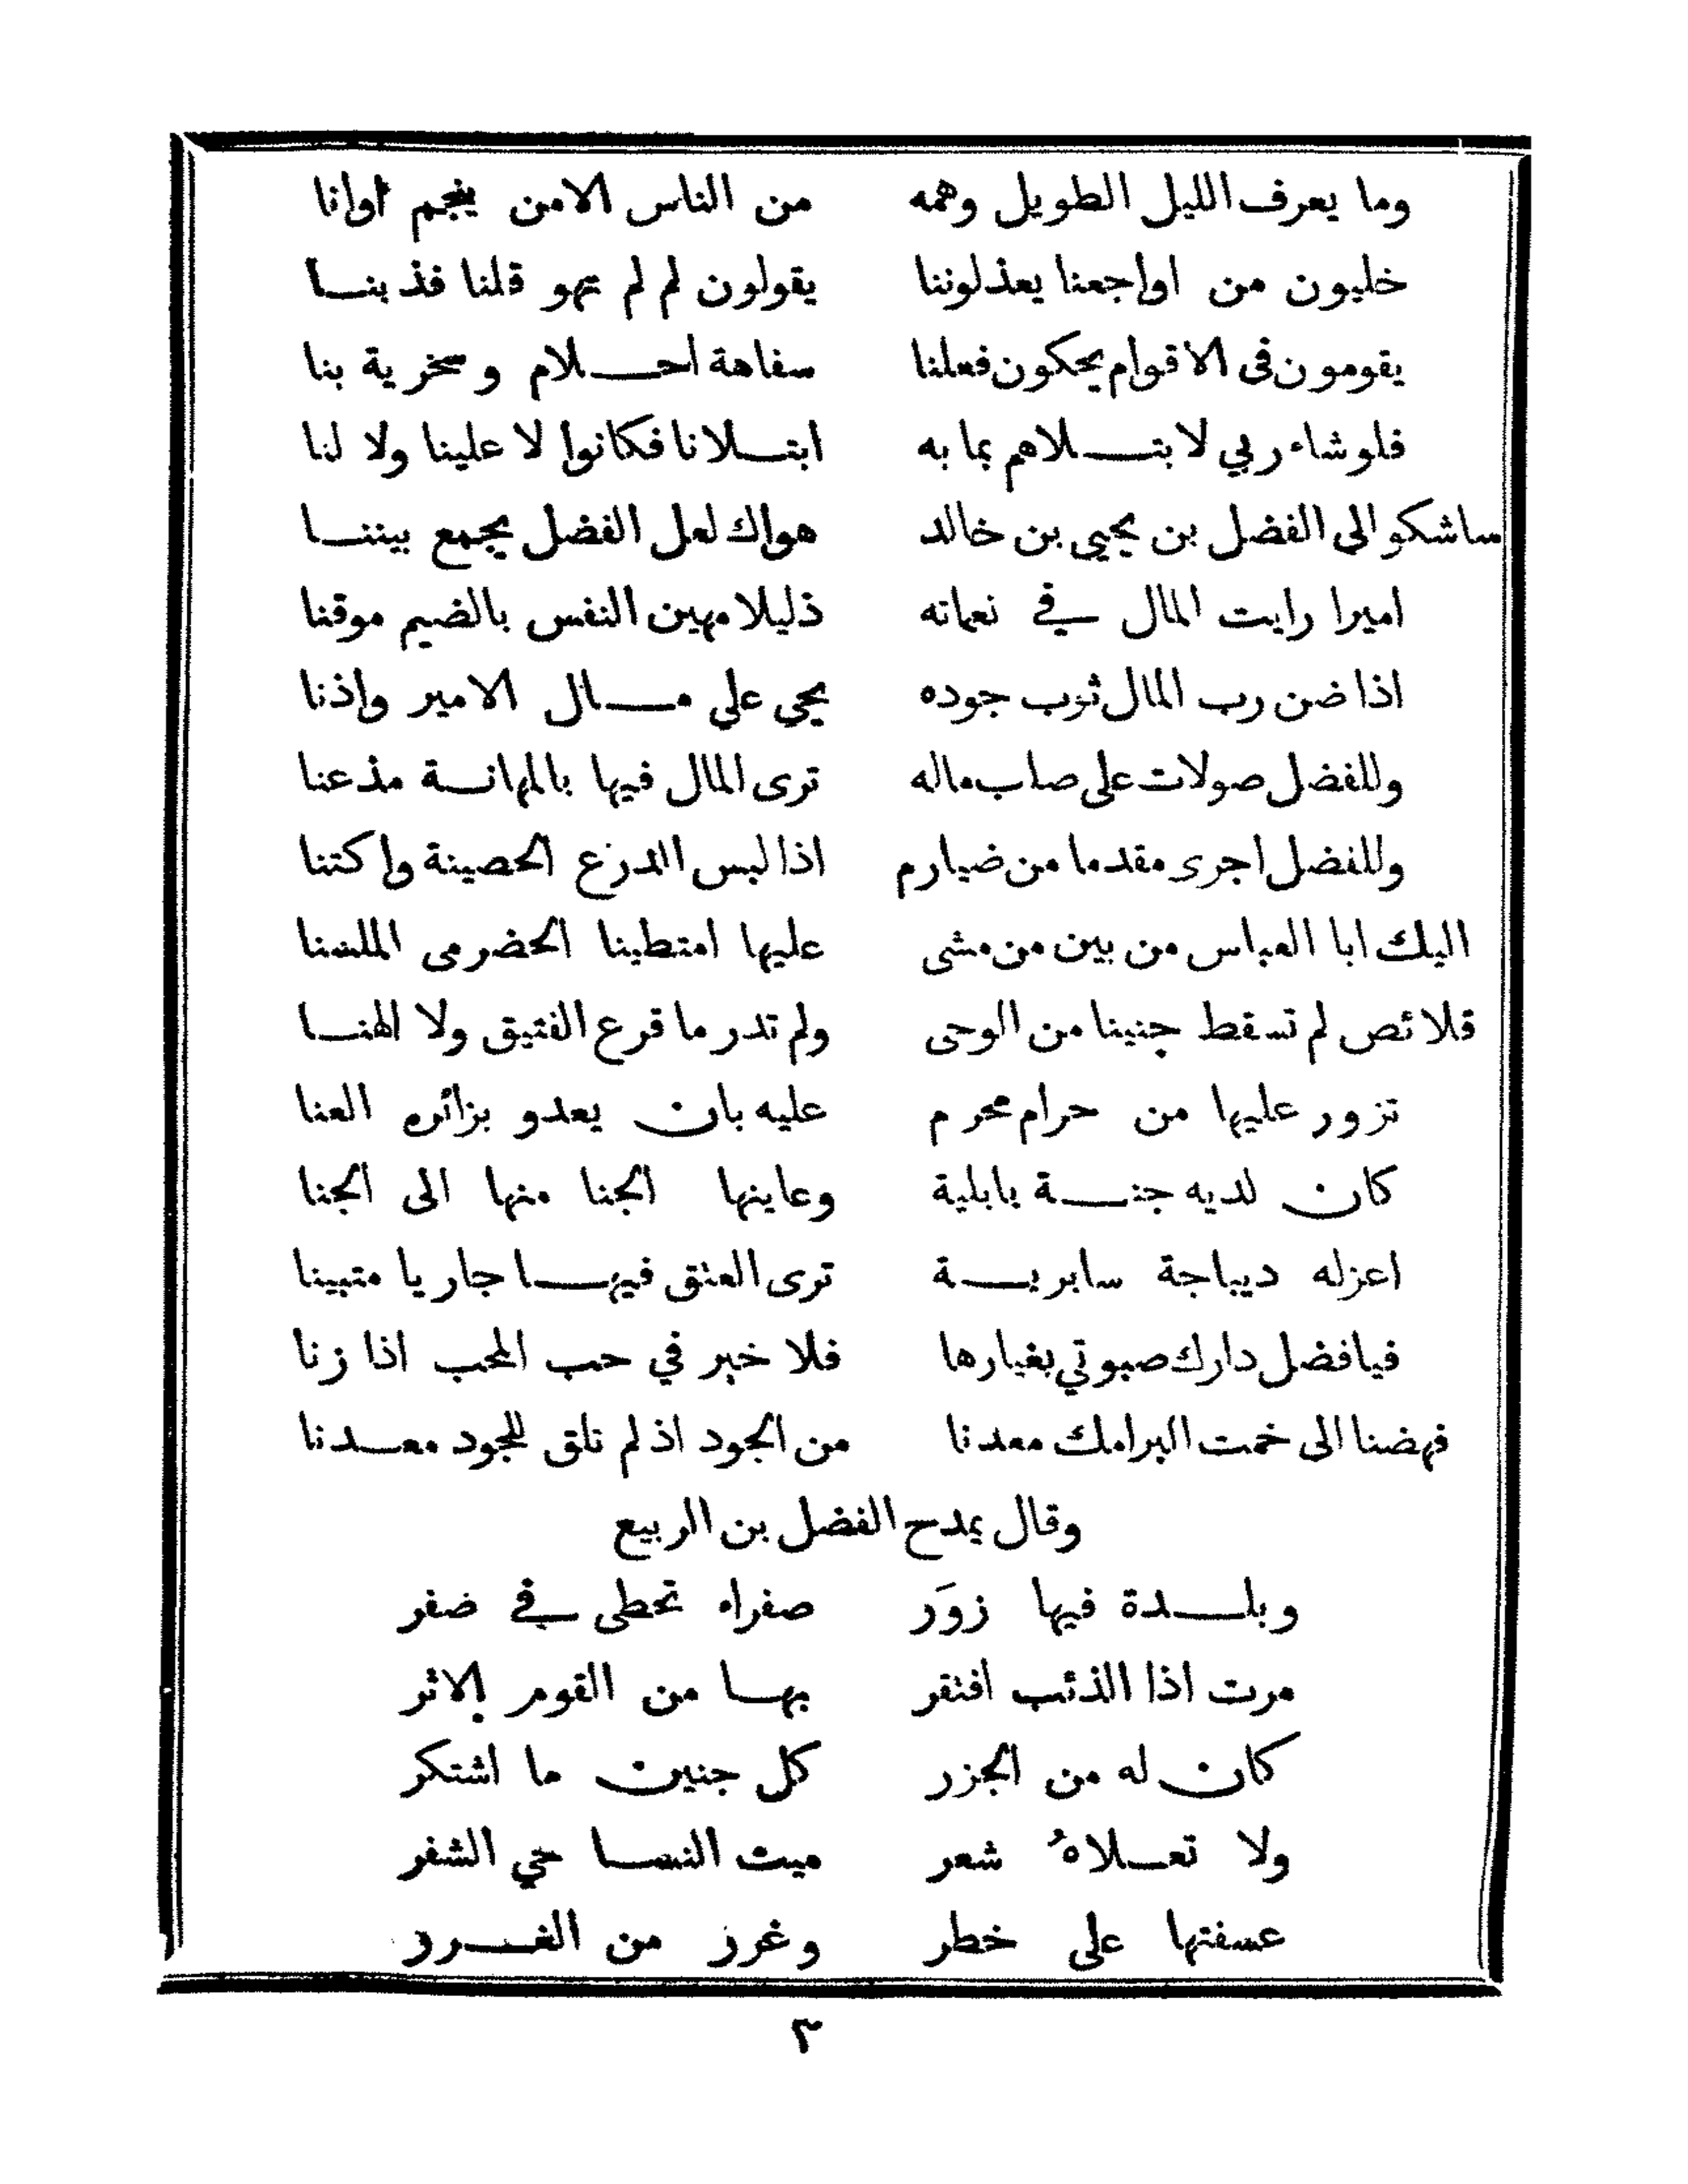 وما يعرف الليل الطويل وهمه من الناس الا من ينجم اوانا
خليون من اواجعنا يعذلوننا يقولون لم لم تهو قلنا فذ بنـــا
يقومون فى الاقوام يحكون فعلنا سفاهة احـــلام و سخرية بنا
فلو شاء ربي لابتـــلاهم بما به ابتـــلانا فكانوا لا علينا ولا لنا
ساشكو الى الفضل بن يحيى بن خالد هواك لعل الفضل يجمع بيننـــا
اميرا رايت المال في نعماته ذليلا مهين النفس بالضيم موقنا
اذا ضن رب المال ثوب جوده يحي علي مـــال الامير واذنا
وللفضل صولات على صلب ماله ترى المال فيها بالمهانـــة مذعنا
وللفضل اجرى مقدما من ضيارم اذا لبس الدرع الحصينة واكتنا
اليك ابا العباس من بين من مشى عليها امتطينا الحضرمى الملسنا
قلائص لم تسقط جنينا من الوحى ولم تدر ما قرع الفنيق ولا الهنـــا
تزور عليها من حرام محرم عليه بان يعدو بزائره العنا
كان لديه جنـــة بابلية وعاينها الجنا منها الى الجنا
اعزله ديباجة سابريـــة ترى العنق فيهـــا جاريا متبينا
فيا فضل دارك صبوتي بغيارها فلا خير في حب المحب اذا زنا
فهضنا الى خمت البرامك معدنا من الجود اذ لم تلق للجود معـــدنا
وقال يمدح الفضل بن الربيع
وبلـــدة فيها زوَر صفراء تحطى في ضفر
مرت اذا الذئب افتقر بهـــا من القوم الاثر
كان له من الجزر كل جنين ما اشتكر
ولا تعـــلاهُ شعر ميت النســـا حي الشفر
عسفتها على خطر وغرر من الغـــرر
٣